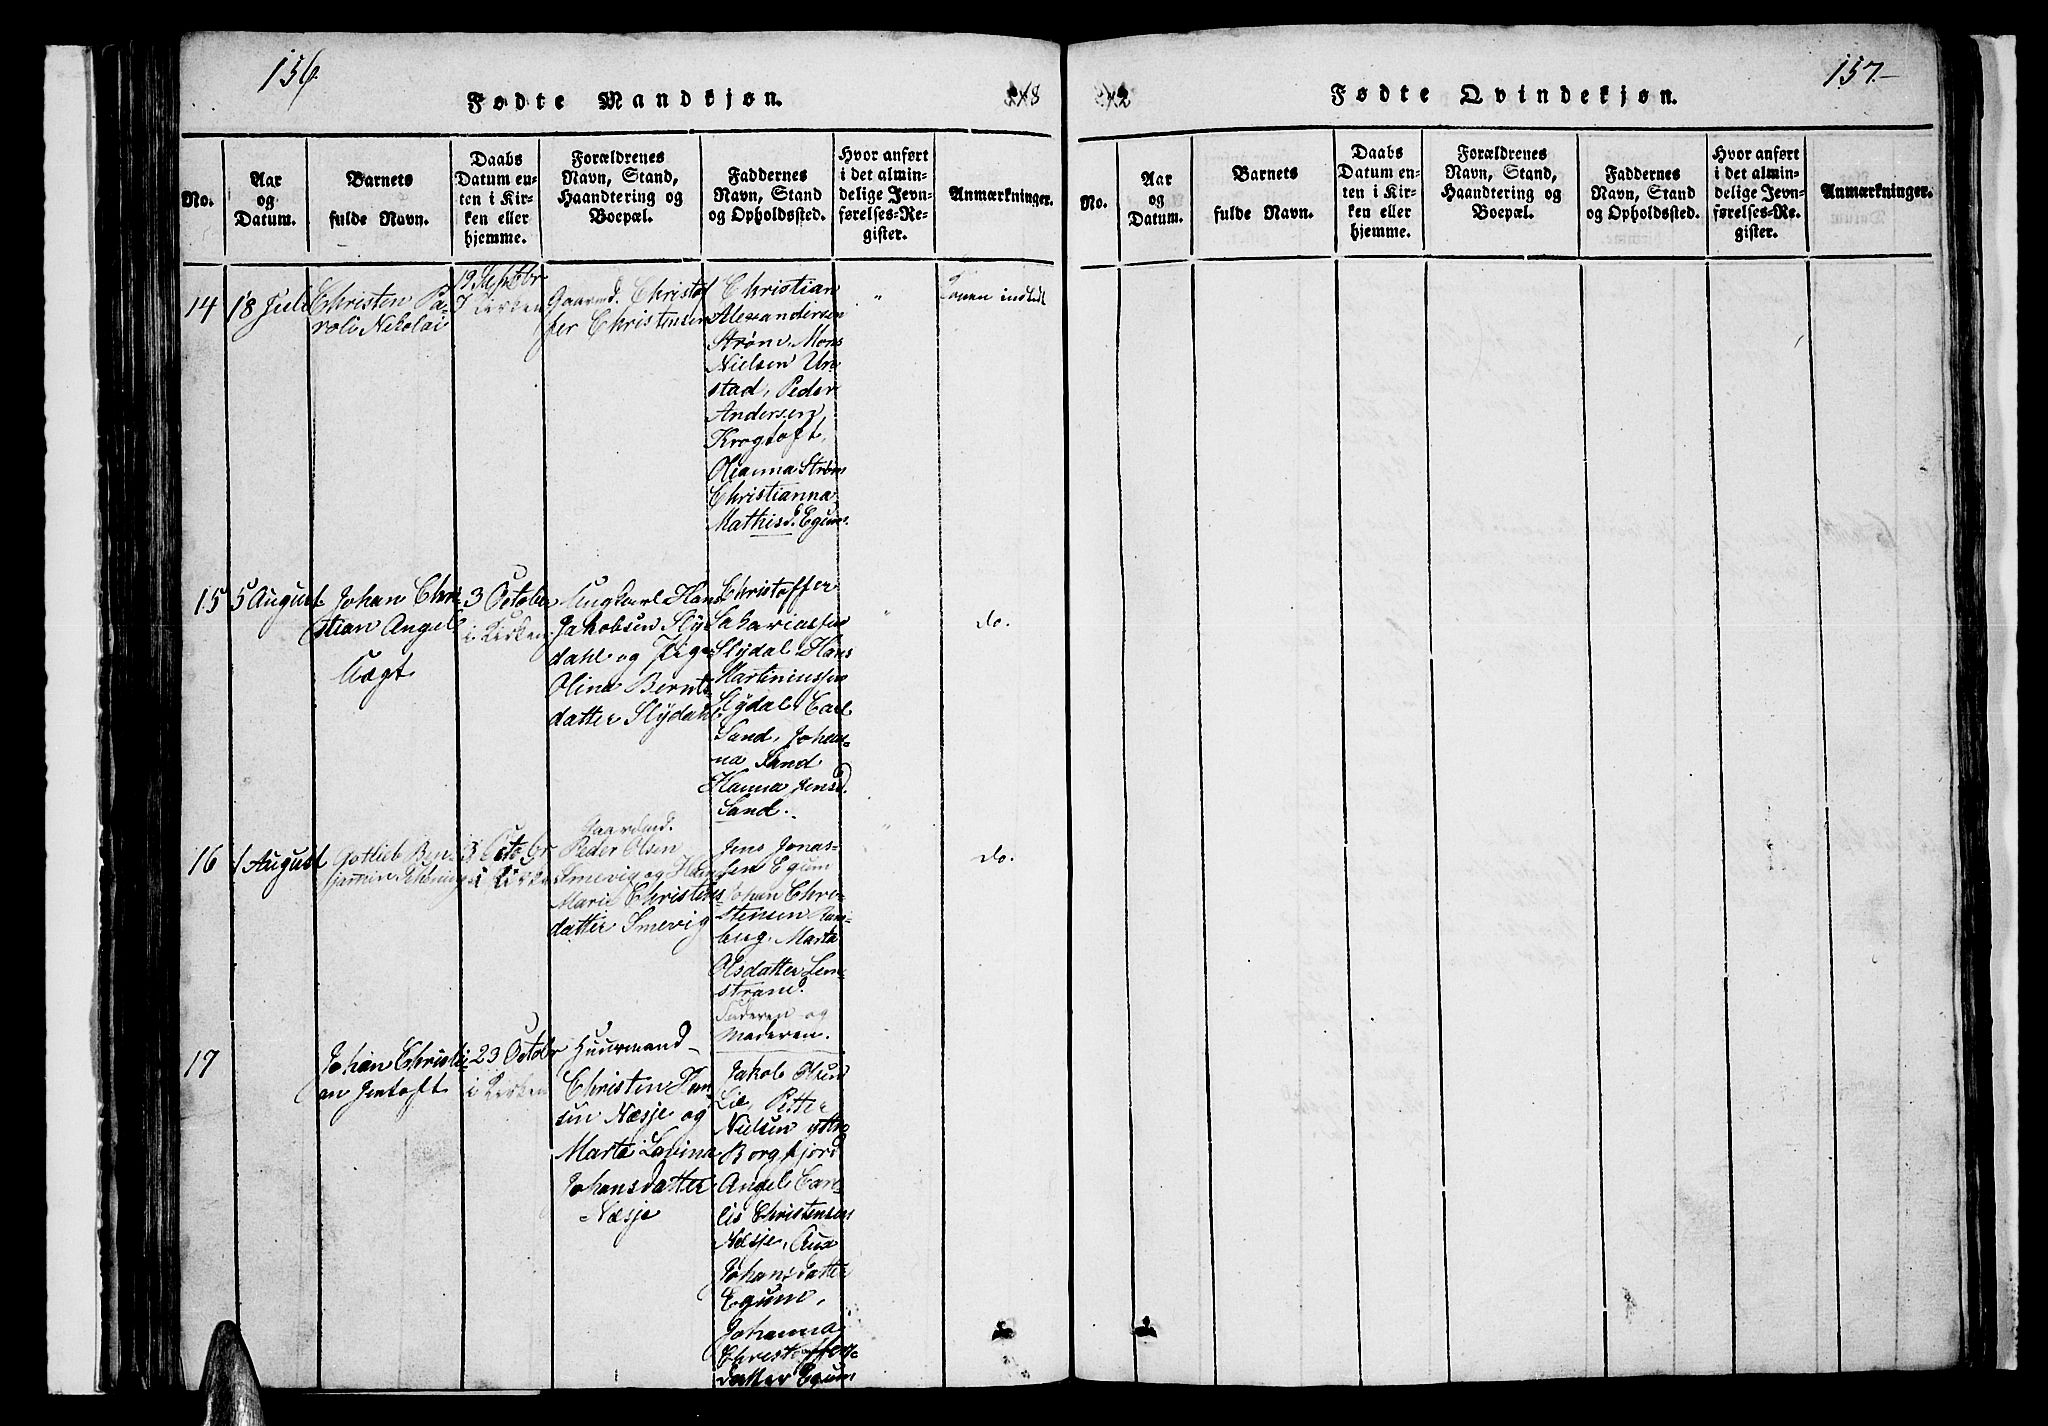 156
Fødte Mandkjøn.
No.
Aar
og
Datum.
Barnets
fulde Navn.
Daabs
Datum en-
ten i Kir-
ken eller
hjemme.
Forældrenes
Navn, Stand,
Haandtering og
Boepæl.
Faddernes
Navn, Stand
og Opholdssted.
Hvor anført
i det almin-
delige Jevn-
førelses-Re-
gister.
Anmærkninger.
14
18 Juli
Christen
Nikolai
19 Septbr
i Kirken
Gaarmd. Christof
fer Christensen
Christian
Alexandersen
Strøm, Mons
Nielsen Un-
stad, Peder
Andersen,
Krogtoft,
Olianna Strøm
Christianna
Mathisd. Egum.
"
indtedt
15
5 August
Johan Chri-
stian Angel
Vogt
3 October
i Kirken
Ungkarl Hans
Jakobsen Sly
dahl og Pige
Olina Bernts
datter Slydahl
Christoffer
Sakariassen
Slydal, Hans
Martiniussen
Slydal, Carl
Sand, Johan-
na Sand
Hanna Jensd.
Sand.
"
do.
16
1 August
Gotlieb Ben-
jamin
3 Octobr
i Kirken
Gaardmd.
Peder Olsen
Smevig og
Marie Christens
datter Smevig
Jens Jonas-
sen Egum
Johan Chri-
stensen Ram-
berg, Marta
Olsdatter
strand.
Faderen og
Moderen.
"
do.
17
Johan Christi-
an Jentoft
23 Octobr
i Kirken
Huusmand
Christen Han
sen Næsje og
Marta Lovina
Johansdatter
Næsje
Jakob Olsen
Lie, Petter
Nielsen yttre
Borgfjord
Angel Car-
lis Christensen
Næsje,
Johansdatter
Egum,
Johanna
Christoffers-
datter Egum
157
Fødte Qvindekjøn.
No.
Aar
og
Datum.
Barnets
fulde Navn.
Daabs
Datum en-
ten i Kir-
ken eller
hjemme.
Forældrenes
Navn, Stand,
Haandtering og
Boepæl.
Faddernes
Navn, Stand
og Opholdssted.
Hvor anført
i det almin-
delige Jevn-
førelses-Re-
gister.
Anmærkninger.